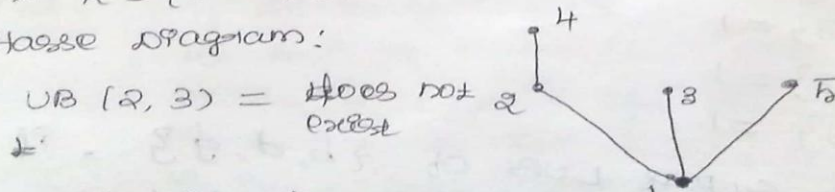 Hasse Diagram:
UB (2, 3) = does not
exist
4
2
3
5